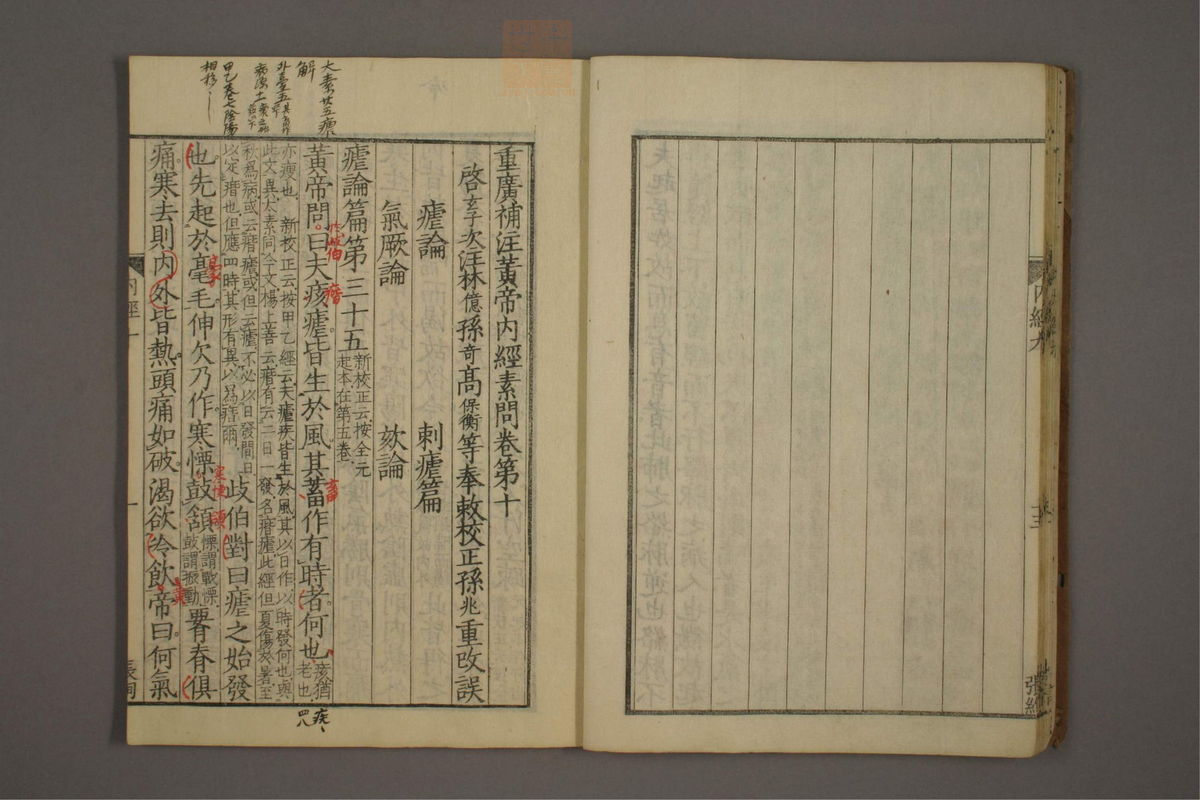 重廣補注黃帝內經素問卷第十
啓玄子次注林億孫奇高保衡等奉敕校正孫兆重改誤
瘧論　刺瘧篇
氣厥論　欬論
瘧論篇第三十五
新校正云按全元
起本在第五卷
黃帝問曰夫痎瘧皆生於風其蓄作有時者何也
痎猶
老也
亦瘦也　新校正云按甲乙經云夫瘧疾皆生於風其以日作以時發何也與
此文異太素同今文楊上善云痎有云二日一發名痎瘧此經但夏傷於暑至
秋爲病或云痎瘧或但云瘧不必以日發間日
以定痎也但應四時其形有異以爲痎爾
歧伯對曰瘧之始發
也先起於毫毛伸欠乃作寒慄鼓頷
慄謂戰慄
鼓謂振動
腰脊俱
痛寒去則內外皆熱頭痛如破渴欲冷飲帝曰何氣
大素廿五瘧
解
甲乙卷七陰陽
相移
內經十
一
內經九